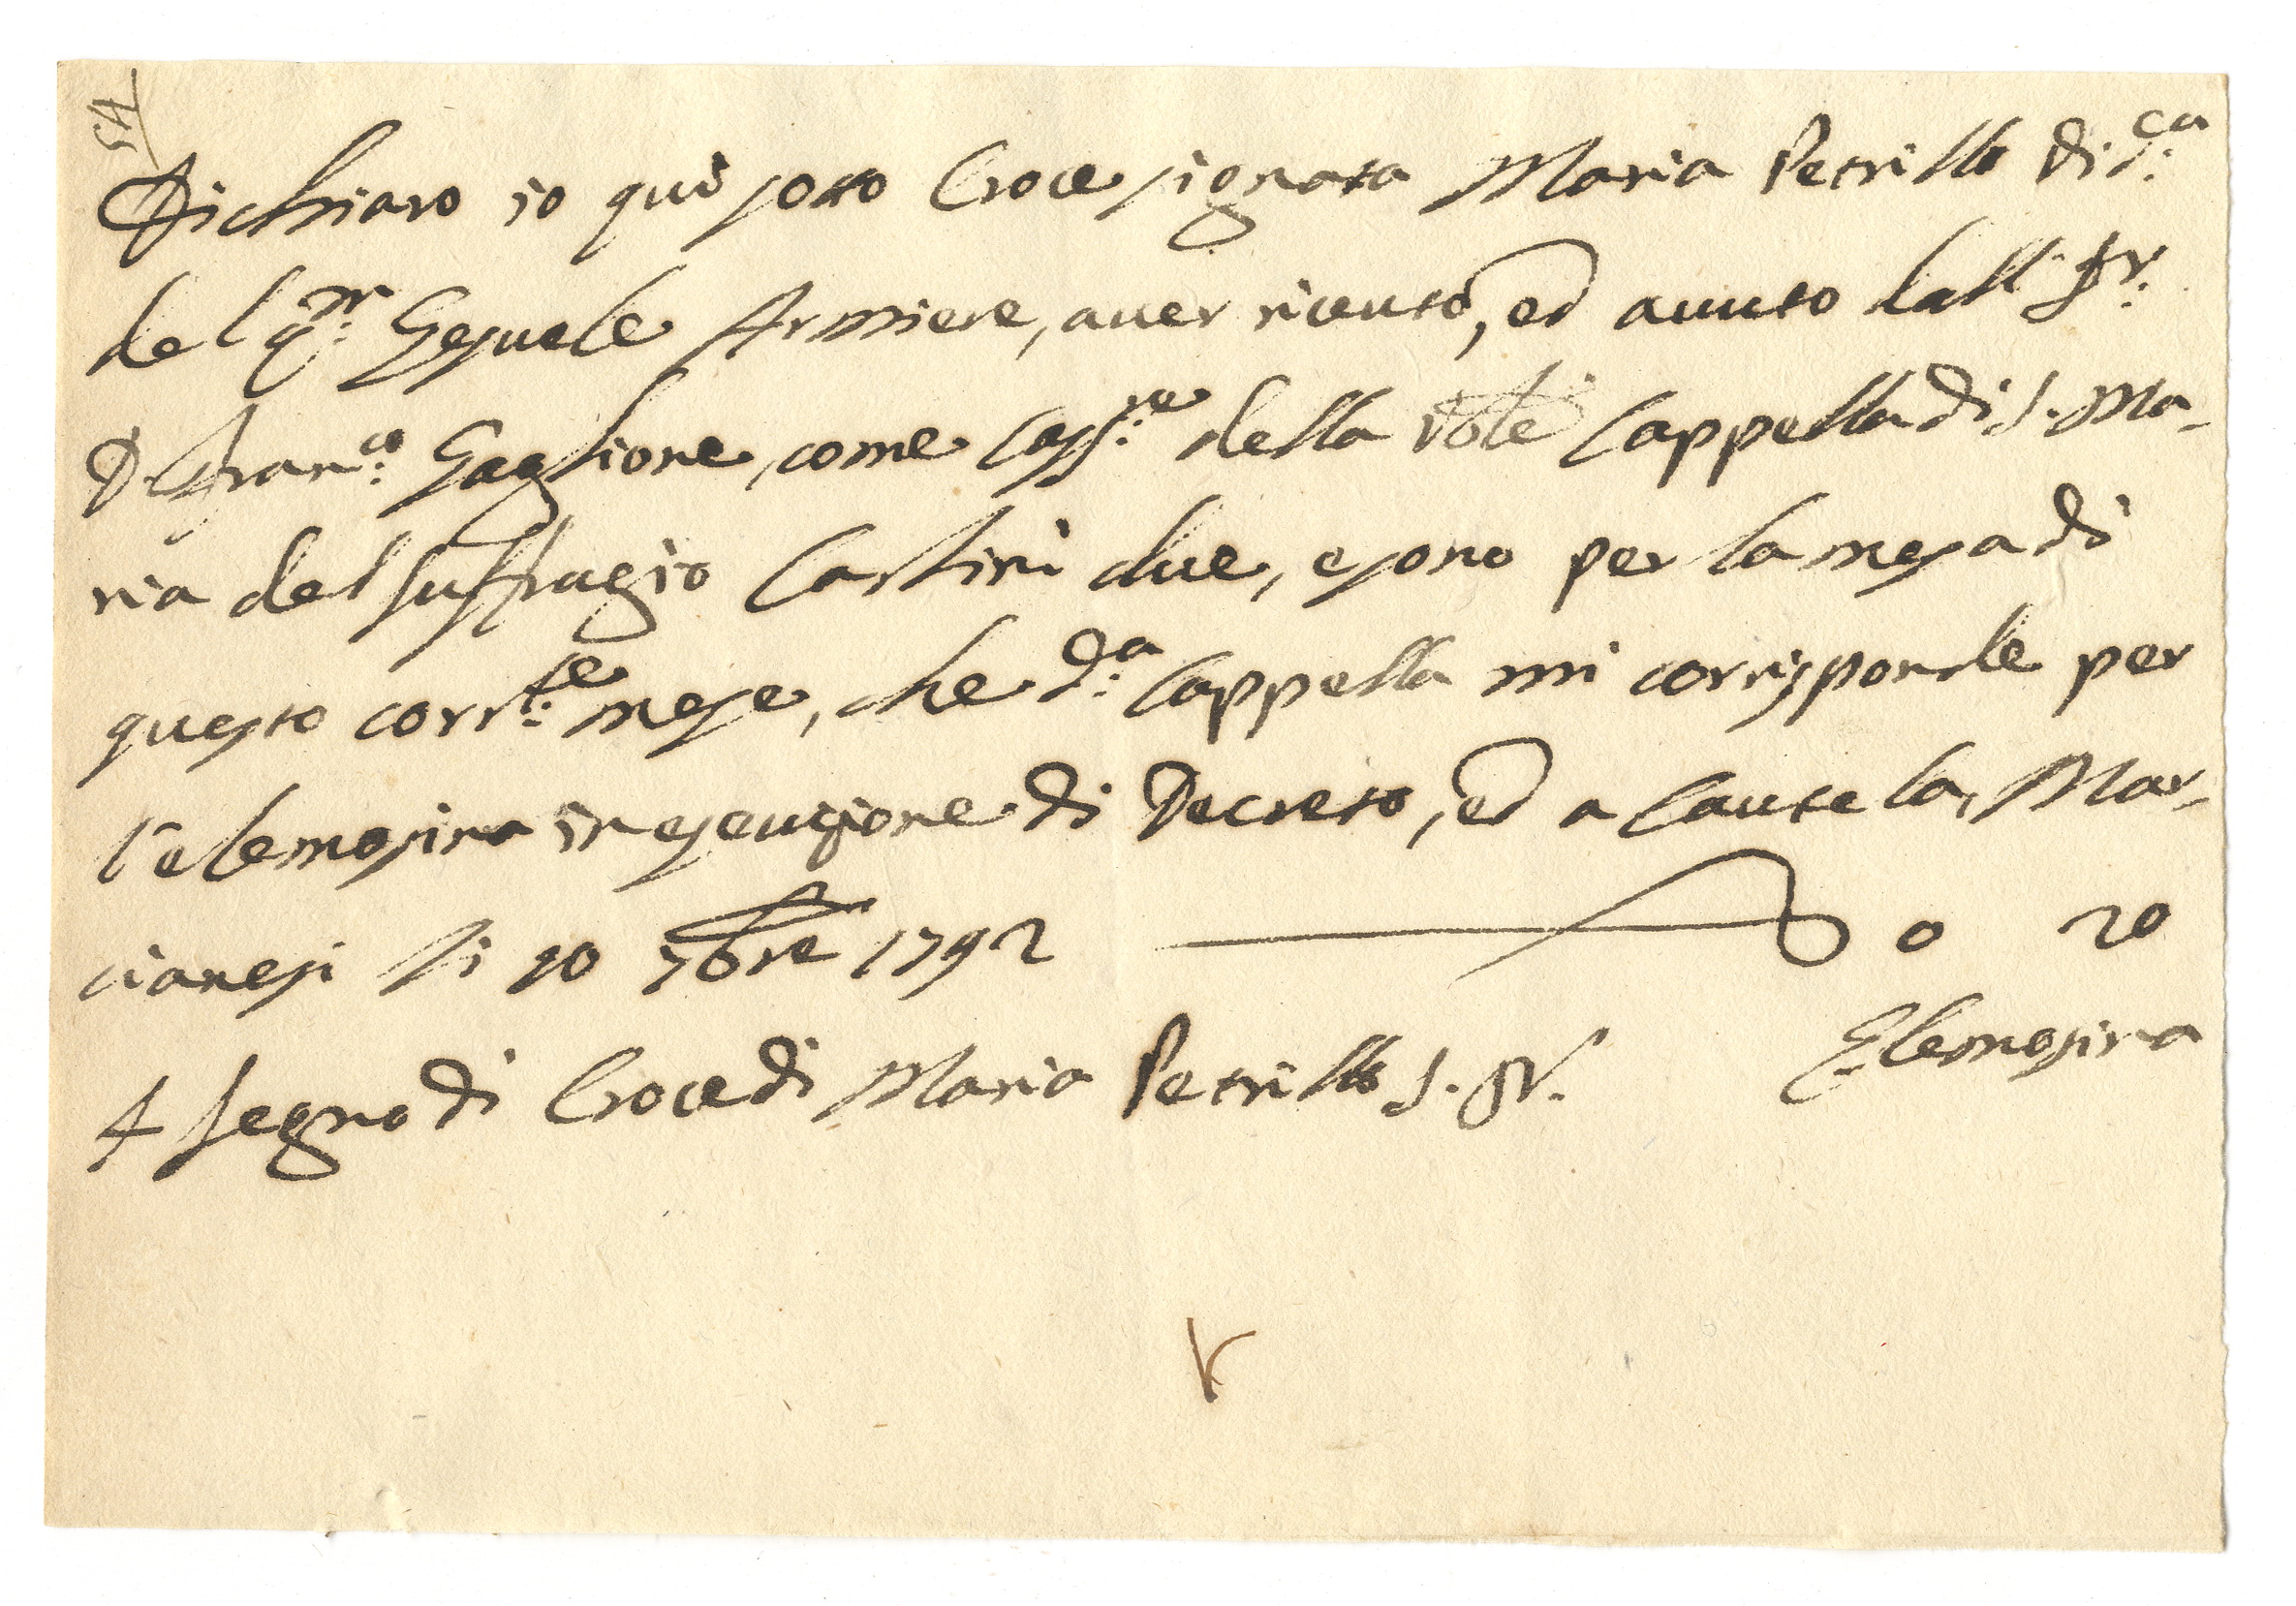 54
Dichiaro io qui sotto Croce signata Maria Petrillo
del qm: Gesuele Armiere, aver riceuto, ed auuto dall Sr.
D. Franco: Gaglione, come Cassre: della Vble Cappella di S. Ma-
ria del Suffragio Carlini due, e sono per la mesa di
questo corrte: mese, che da: Cappella mi corrisponde per
l'elemosina in esecuzione di Decreto, ed a Cautela, Mar-
cianesi li 10 7bre 1792 0 20
+ Segno di Croce di Maria Petrillo Elemosina